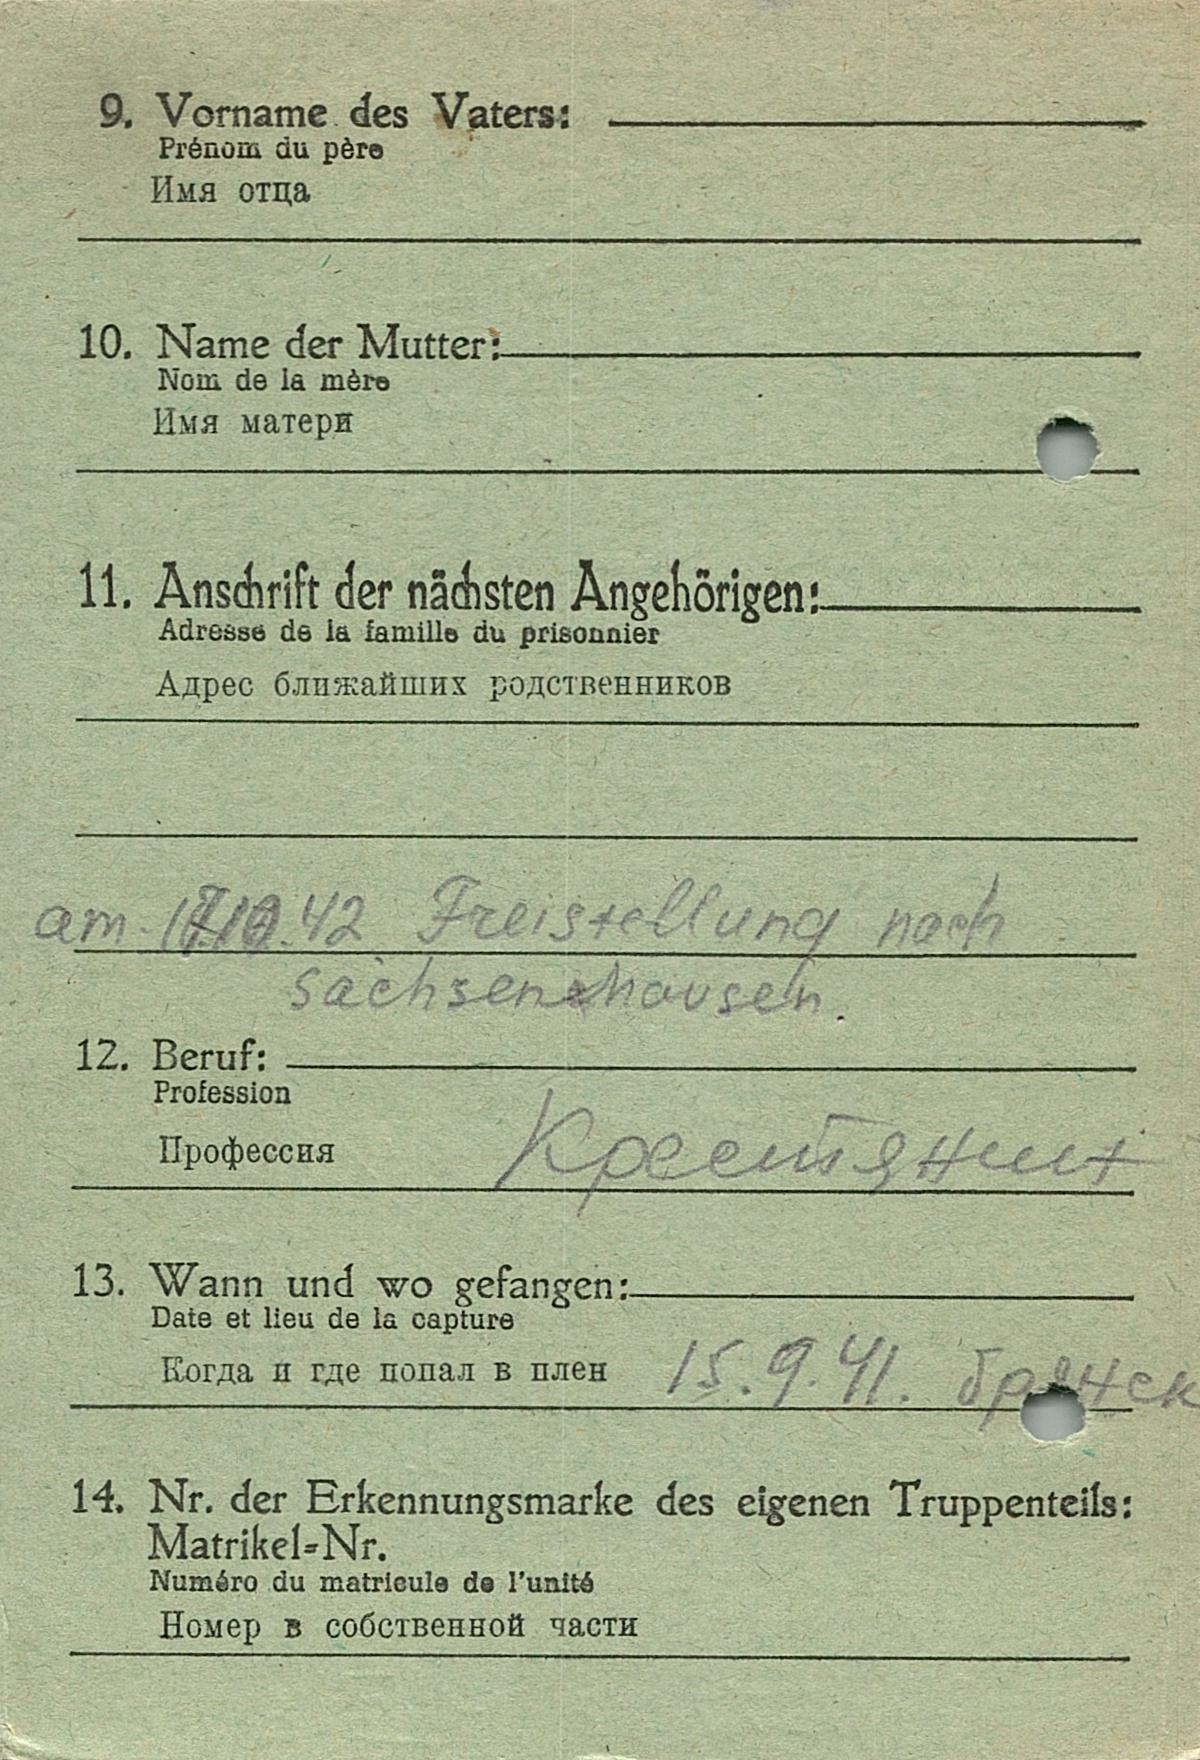 9. Vorname des Vaters:
Prénom du père
Имя отца
10. Name der Mutter:
Nom de la mère
Имя матери
11. Anschrift der nächsten Angehörigen:
Adresse de la famille du prisonnier
Адрес ближайших родственников
am .42 Freistellung nach
sachsenhausen.
12. Beruf:
Profession
Профессия
Крестянин
13. Wann und wo gefangen:
Date et lieu de la capture
Когда и где попал в плен 15.9.41. брянск
14. Nr. der Erkennungsmarke des eigenen Truppenteils:
Matrikel=Nr.
Numéro du matricule de l'unité
Номер в собственной части